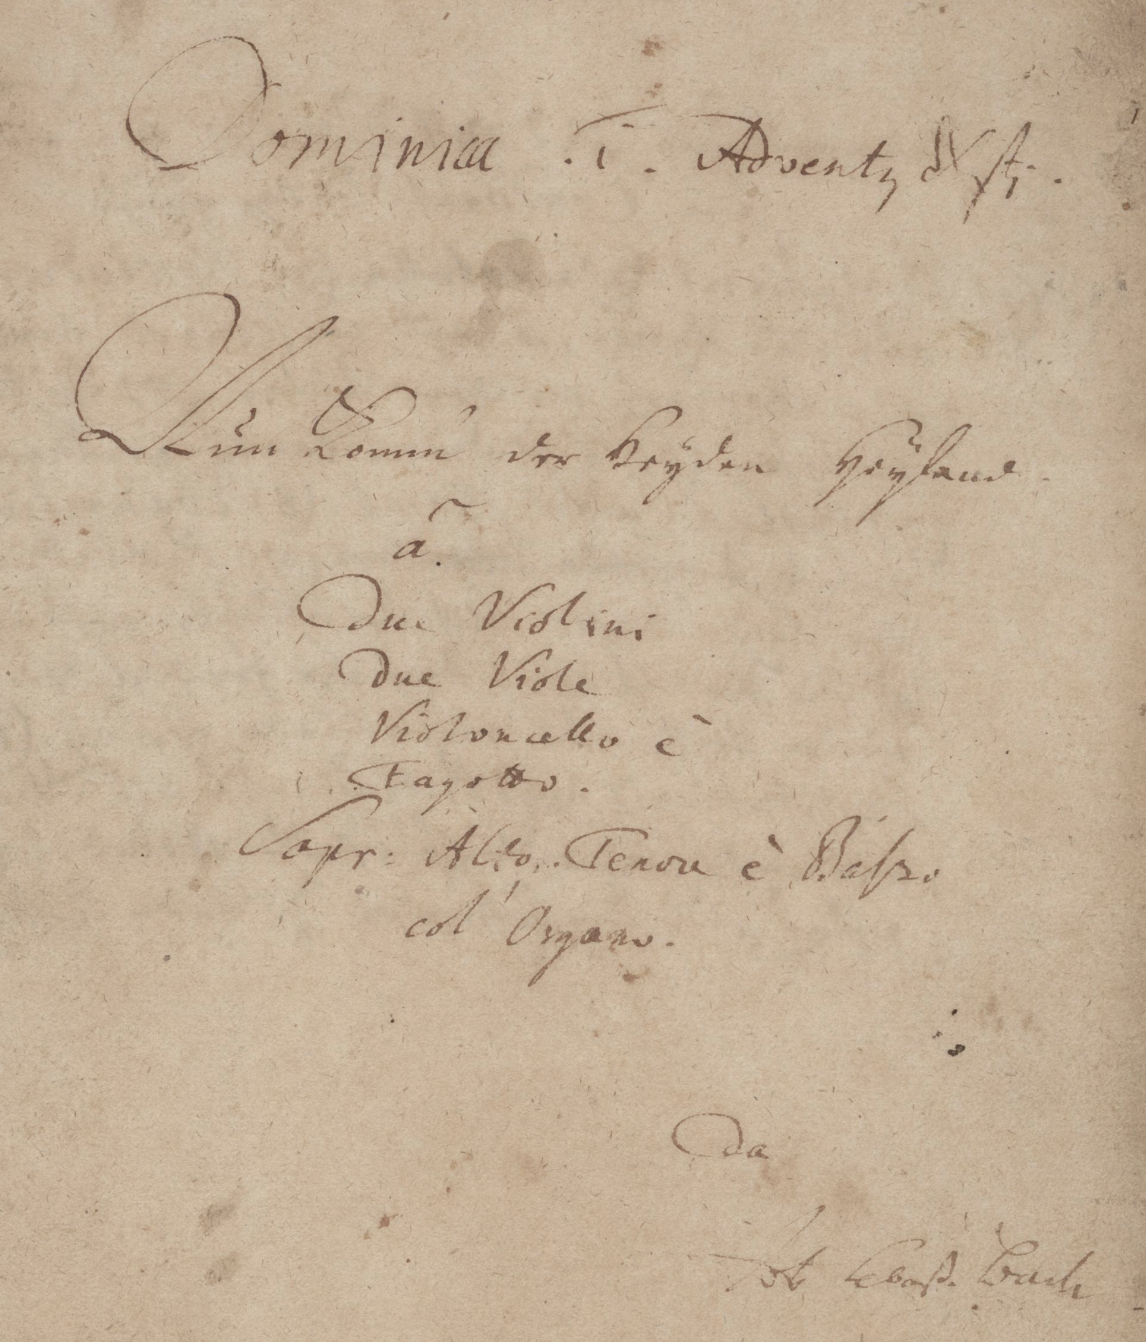 Dominica .I. Adventq Xsti.
Nun komm der Heyden Heyland.
â.
Due Violini
Due Viole
Violoncello è
Fagotto.
Sopr: Alto. Tenore è Basso
col' Organo.
Da
Joh Sebast. Bach